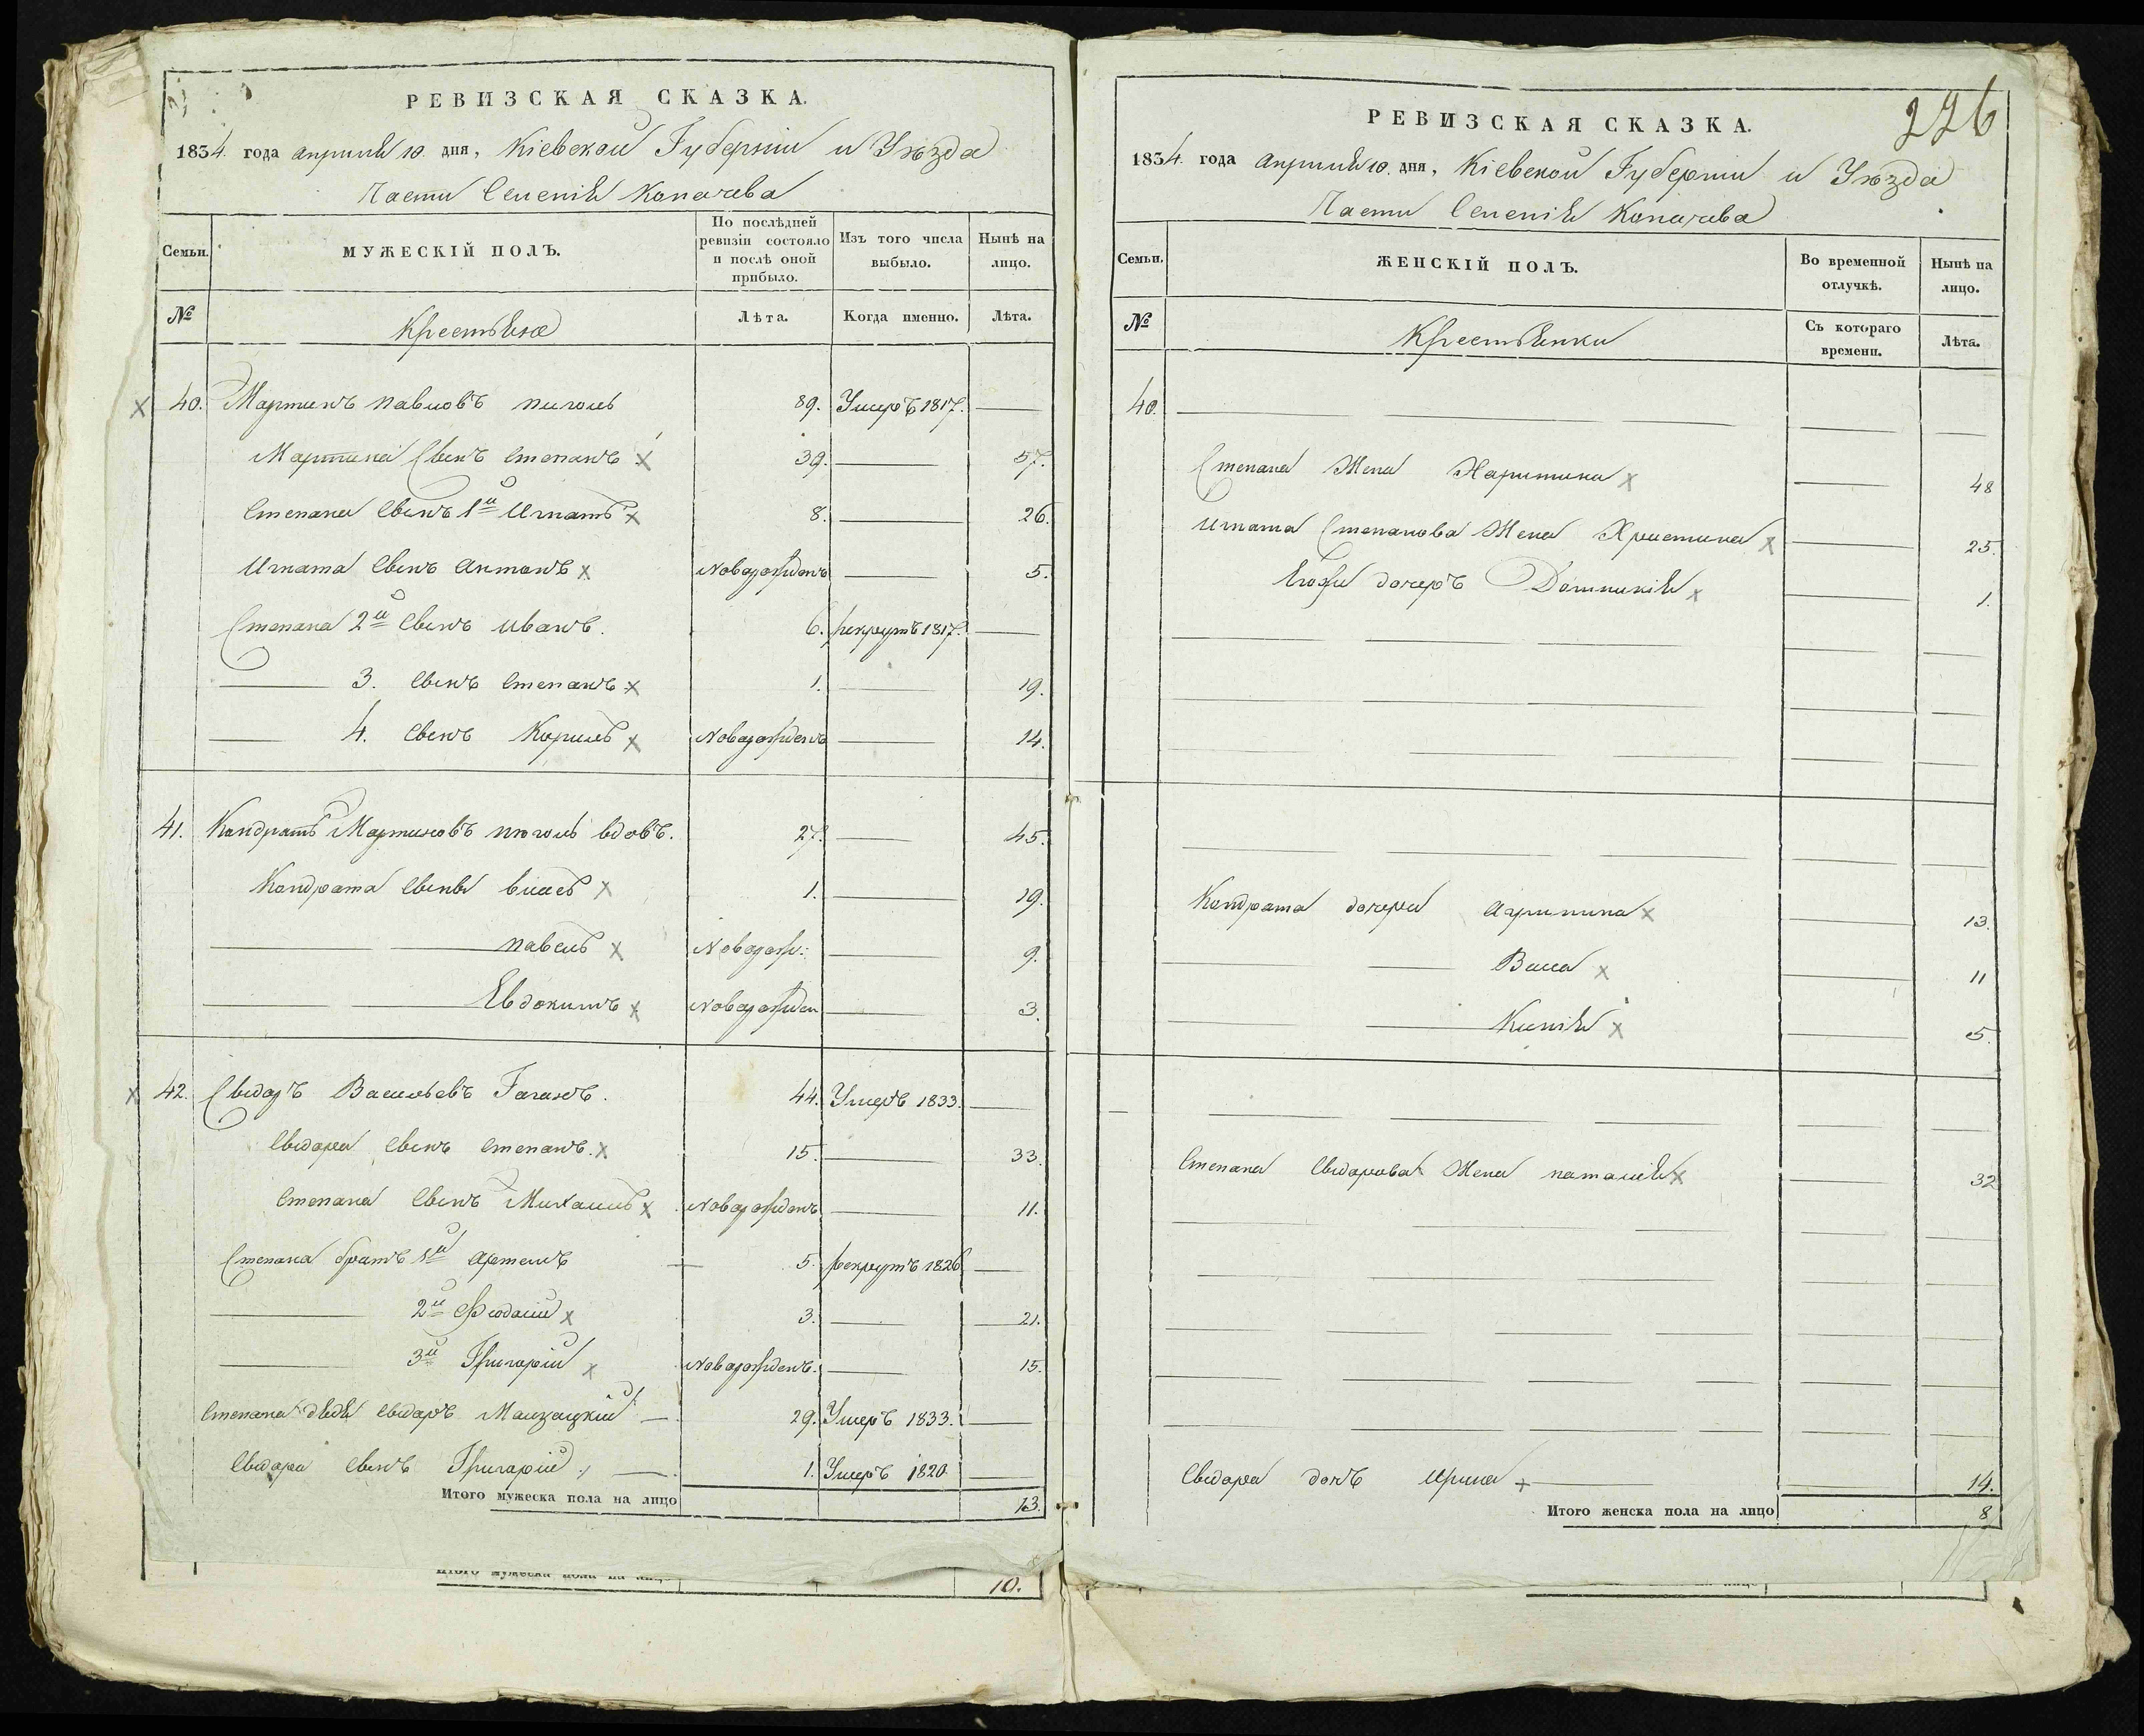 РЕВИЗСКАЯ СКАЗКА.
1834. года апреля 10. дня, Кіевской Губерніи и Уѣзда
Части Селенія Копачева
Семьи.
МУЖЕСКІЙ ПОЛЪ.
По послѣдней ревизіи состояло и послѣ оной прибыло.
Изъ того числа выбыло.
Нынѣ на лицо.
№
Крестьяне
Лѣта.
Когда именно.
Лѣта.
40. Мартинъ Павловъ 89. Умеръ 1817.
Мартина Сынъ Степанъ 39. 57.
Степана Сынъ 1й Игнатъ 8. 26.
Игната Сынъ Антонъ Новорожденъ 5.
Степана 2й Сынъ Иванъ. 6. рекрутъ 1817.
3. Сынъ Степанъ 1. 19.
4. Сынъ Корнилъ Новорожденъ 14.
41. Кондратъ Мартиновъ вдовъ. 27. 45.
Кондрата Сыны Власъ 1. 19.
Павелъ Новорож: 9.
Евдокимъ Новорожден 3.
42. Сыдоръ Васильевъ. 44. Умеръ 1833.
Сыдора Сынъ Степанъ. 15. 33.
Степана Сынъ Михаилъ Новорожденъ 11.
Степана братъ 1й Артемъ 5. рекрутъ 1826
2й Феодосій 3. 21.
3й Григорій Новорожденъ. 15.
Степана дядя Сыдоръ 29. Умеръ 1833.
Сыдора Сынъ Григорій 1. Умеръ 1820
Итого мужеска пола на лицо 13.
10.
226
РЕВИЗСКАЯ СКАЗКА.
1834. года апреля 10. дня, Кіевской Губерніи и Уѣзда
Части Селенія Копачева
Семьи.
ЖЕНСКІЙ ПОЛЪ.
Во временной отлучкѣ.
Нынѣ на лицо.
№
Крестьянки
Съ котораго времени.
Лѣта.
40.
Степана Жена Харитина 48
Игната Степанова Жена Христина 25.
Егожъ дочеръ Домникія 1.
Кондрата дочери Агрипина 13.
Васса 11
Ксенія 5.
Степана Сыдорова Жена Наталія 32
Сыдора дочъ Ирина 14.
Итого женска пола на лицо 8